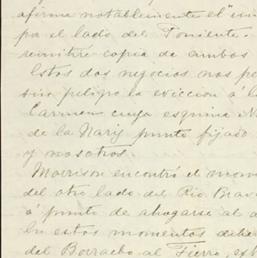 afirma notablemente el
por el lado del Poniente.
remitire copia de ambos
Estos dos negocios nos po
sin peligro la eviccion á l
Carmen cuya esquina N
de la Nariz punto fijado
y nosotros.
Morrison encontró el mon
del otro lado del Rio Brav
á punto de ahogarse al
En estos momentos debe
del Borracho al Fierro,